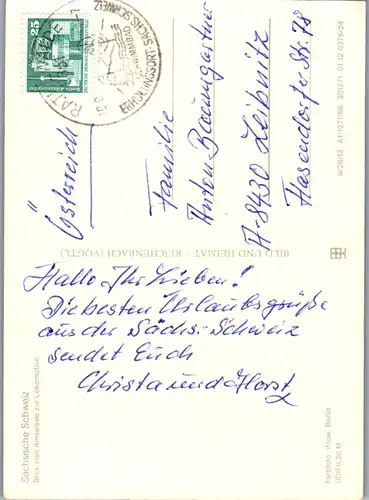 Sächsische Schweiz
Blick vom Amselsee zur Lokomotive
Hallo Ihr Lieben!
Die besten Urlaubsgrüße
aus der Sächs. Schweiz
sendet Euch
Christa und Horst
Farbfoto: Ihlow, Berlin
DDR 0,20 M
BILD UND HEIMAT · REICHENBACH (VOGTL.)
25
ERHOLUNGSORT · SÄCHS. SCHWEIZ
Österreich
Familie
Anton Baumgartner
A-8430 Leibnitz
Hasendorfer Str. 78
A1/1271/86 301271 01 12 0376/24